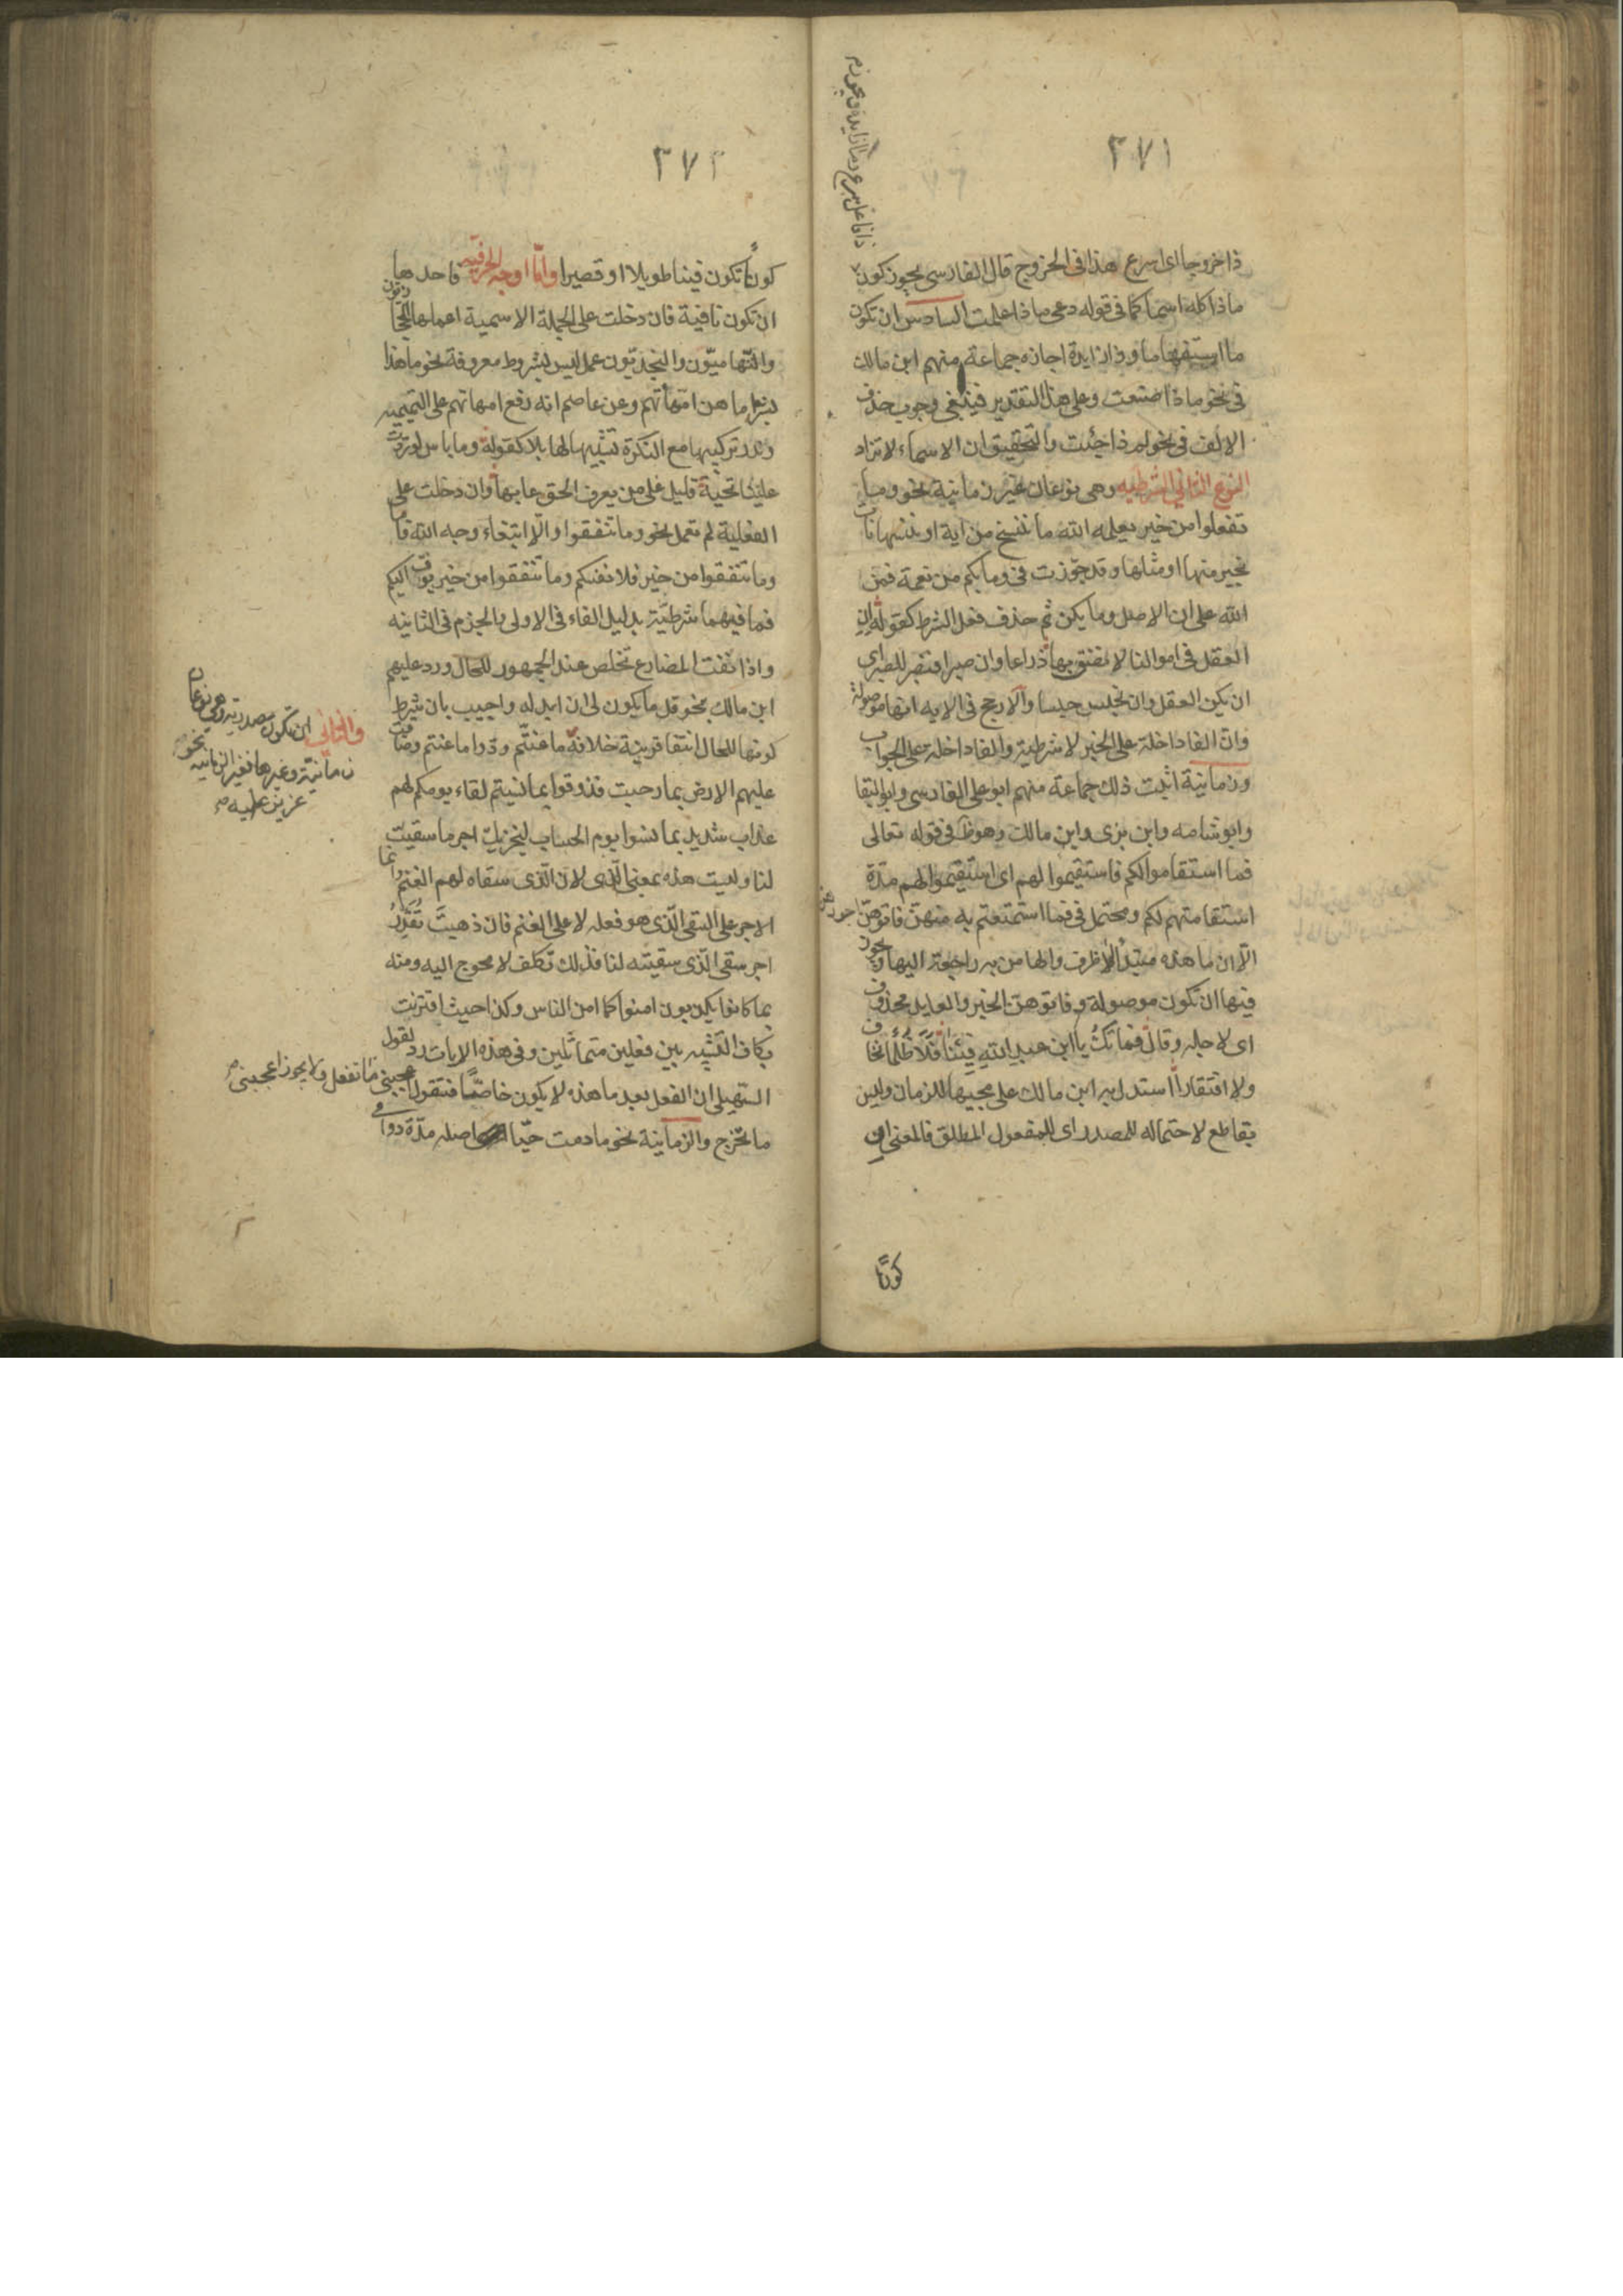 ٢٧١
ذا خروجا اى اسرع هذا فى الخروج قال الفارسى يجوز كون
ذا فاعل سرع وما زايدة ويجوز
ماذا كله اسما كما فى قوله دعى ماذا علمت السادس ان تكون
ما استفهاما وذا زايدة اجازه جماعة منهم ابن مالك
فى نحو ماذا صنعت وعلى هذا التقدير فينبغى وجوب حذف
الالف فى نحو لم ذا جئت والتحقيق ان الاسماء لا تزاد
النوع الثانى الشرطيه وهى نوعان غير زمانية نحو وما
تفعلوا من خير يعلمه الله ما ننسخ من اية او ننسها نات
بخير منها او مثلها وقد جوزت فى وما بكم من نعمة فمن
الله على ان الاصل وما يكن ثم حذف فعل الشرط كقوله ان
العقل فى اموالنا لا نضق بها ذراعا وان صبرا فنصبر للصبر اى
ان يكن العقل وان نحبس حبسا والارجح فى الايه انها موصولة
وان الفا داخلة على الخبر لا شرطية والفا داخلة على الجواب
وزمانية اثبت ذلك جماعة منهم ابو على الفارسى وابو البقا
وابو شامه وابن برى وابن مالك وهو ظ فى قوله تعالى
فما استقاموا لكم فاستقيموا لهم اى استقيموا لهم مدة
استقامتهم لكم ومحتمل فى فما استمتعتم به منهن فاتوهن اجورهن
الا ان ما هذه مبتدأ لا ظرف والها من به راجعة اليها ويجوز
فيها ان تكون موصولة وفاتوهن الخبر والعايد محذوف
اى لاجله وقال فما تك يا ابن عبد الله فينا فلا ظلما نخاف
ولا افتقارا استدل به ابن مالك على مجيها للزمان وليس
بقاطع لاحتماله للمصدر اى للمفعول المطلق فالمعنى اى
كونا
٢٧٢
كونا تكون فينا طويلا او قصيرا واما اوجه الحرفيه فاحدها
ان تكون نافية فان دخلت على الجملة الاسمية اعملها الحجازيون
والتهاميون والنجديون عمل ليس بشروط معروفة نحو ما هذا
بشرا ما هن امهاتهم وعن عاصم انه رفع امهاتهم على التميميه
وندر تركيبها مع النكرة تشبيها لها بلا كقوله وما باس لو ردت
علينا تحية قليل على من يعرف الحق عابها وان دخلت على
الفعلية لم تعمل نحو وما تنفقوا الا ابتغاء وجه الله فاما
وما تنفقوا من خير فلانفسكم وما تنفقوا من خير يوف اليكم
فما فيهما شرطية بدليل الفاء فى الاولى والجزم فى الثانيه
واذا نفت المضارع تخلص عند الجمهور للحال ورد عليهم
ابن مالك بنحو قل ما يكون لى ان ابدله واجيب بان شرط
كونها للحال انتفا قرينة خلافه ما عنتم ودوا ما عنتم وضاقت
والثانى ان تكون مصدرية وهى نوعان
زمانية وغيرها فغير الزمانيه نحو
عزيز عليه
عليهم الارض بما رحبت فذوقوا بما نسيتم لقاء يومكم لهم
عذاب شديد بما نسوا يوم الحساب ليجزيك اجر ما سقيت
لنا وليست هذه بمعنى الذى لان الذى سقاه لهم الغنم وانما
الاجر على السقى الذى هو فعله لا على الغنم فان ذهبت تقدر
اجر سقى الذى سقيته لنا فذلك تكلف لا محوج اليه ومنه
بما كانوا يكذبون امنوا كما امن الناس وكذا حيث اقترنت
بكاف التشبيه بين فعلين متماثلين وفى هذه الايات رد لقول
السهيلى ان الفعل بعد ما هذه لا يكون خاصا فتقول اعجبنى ما تفعل ولا يجوز اعجبنى
ما تخرج والزمانية نحو ما دمت حيا اصله مدة دوامى